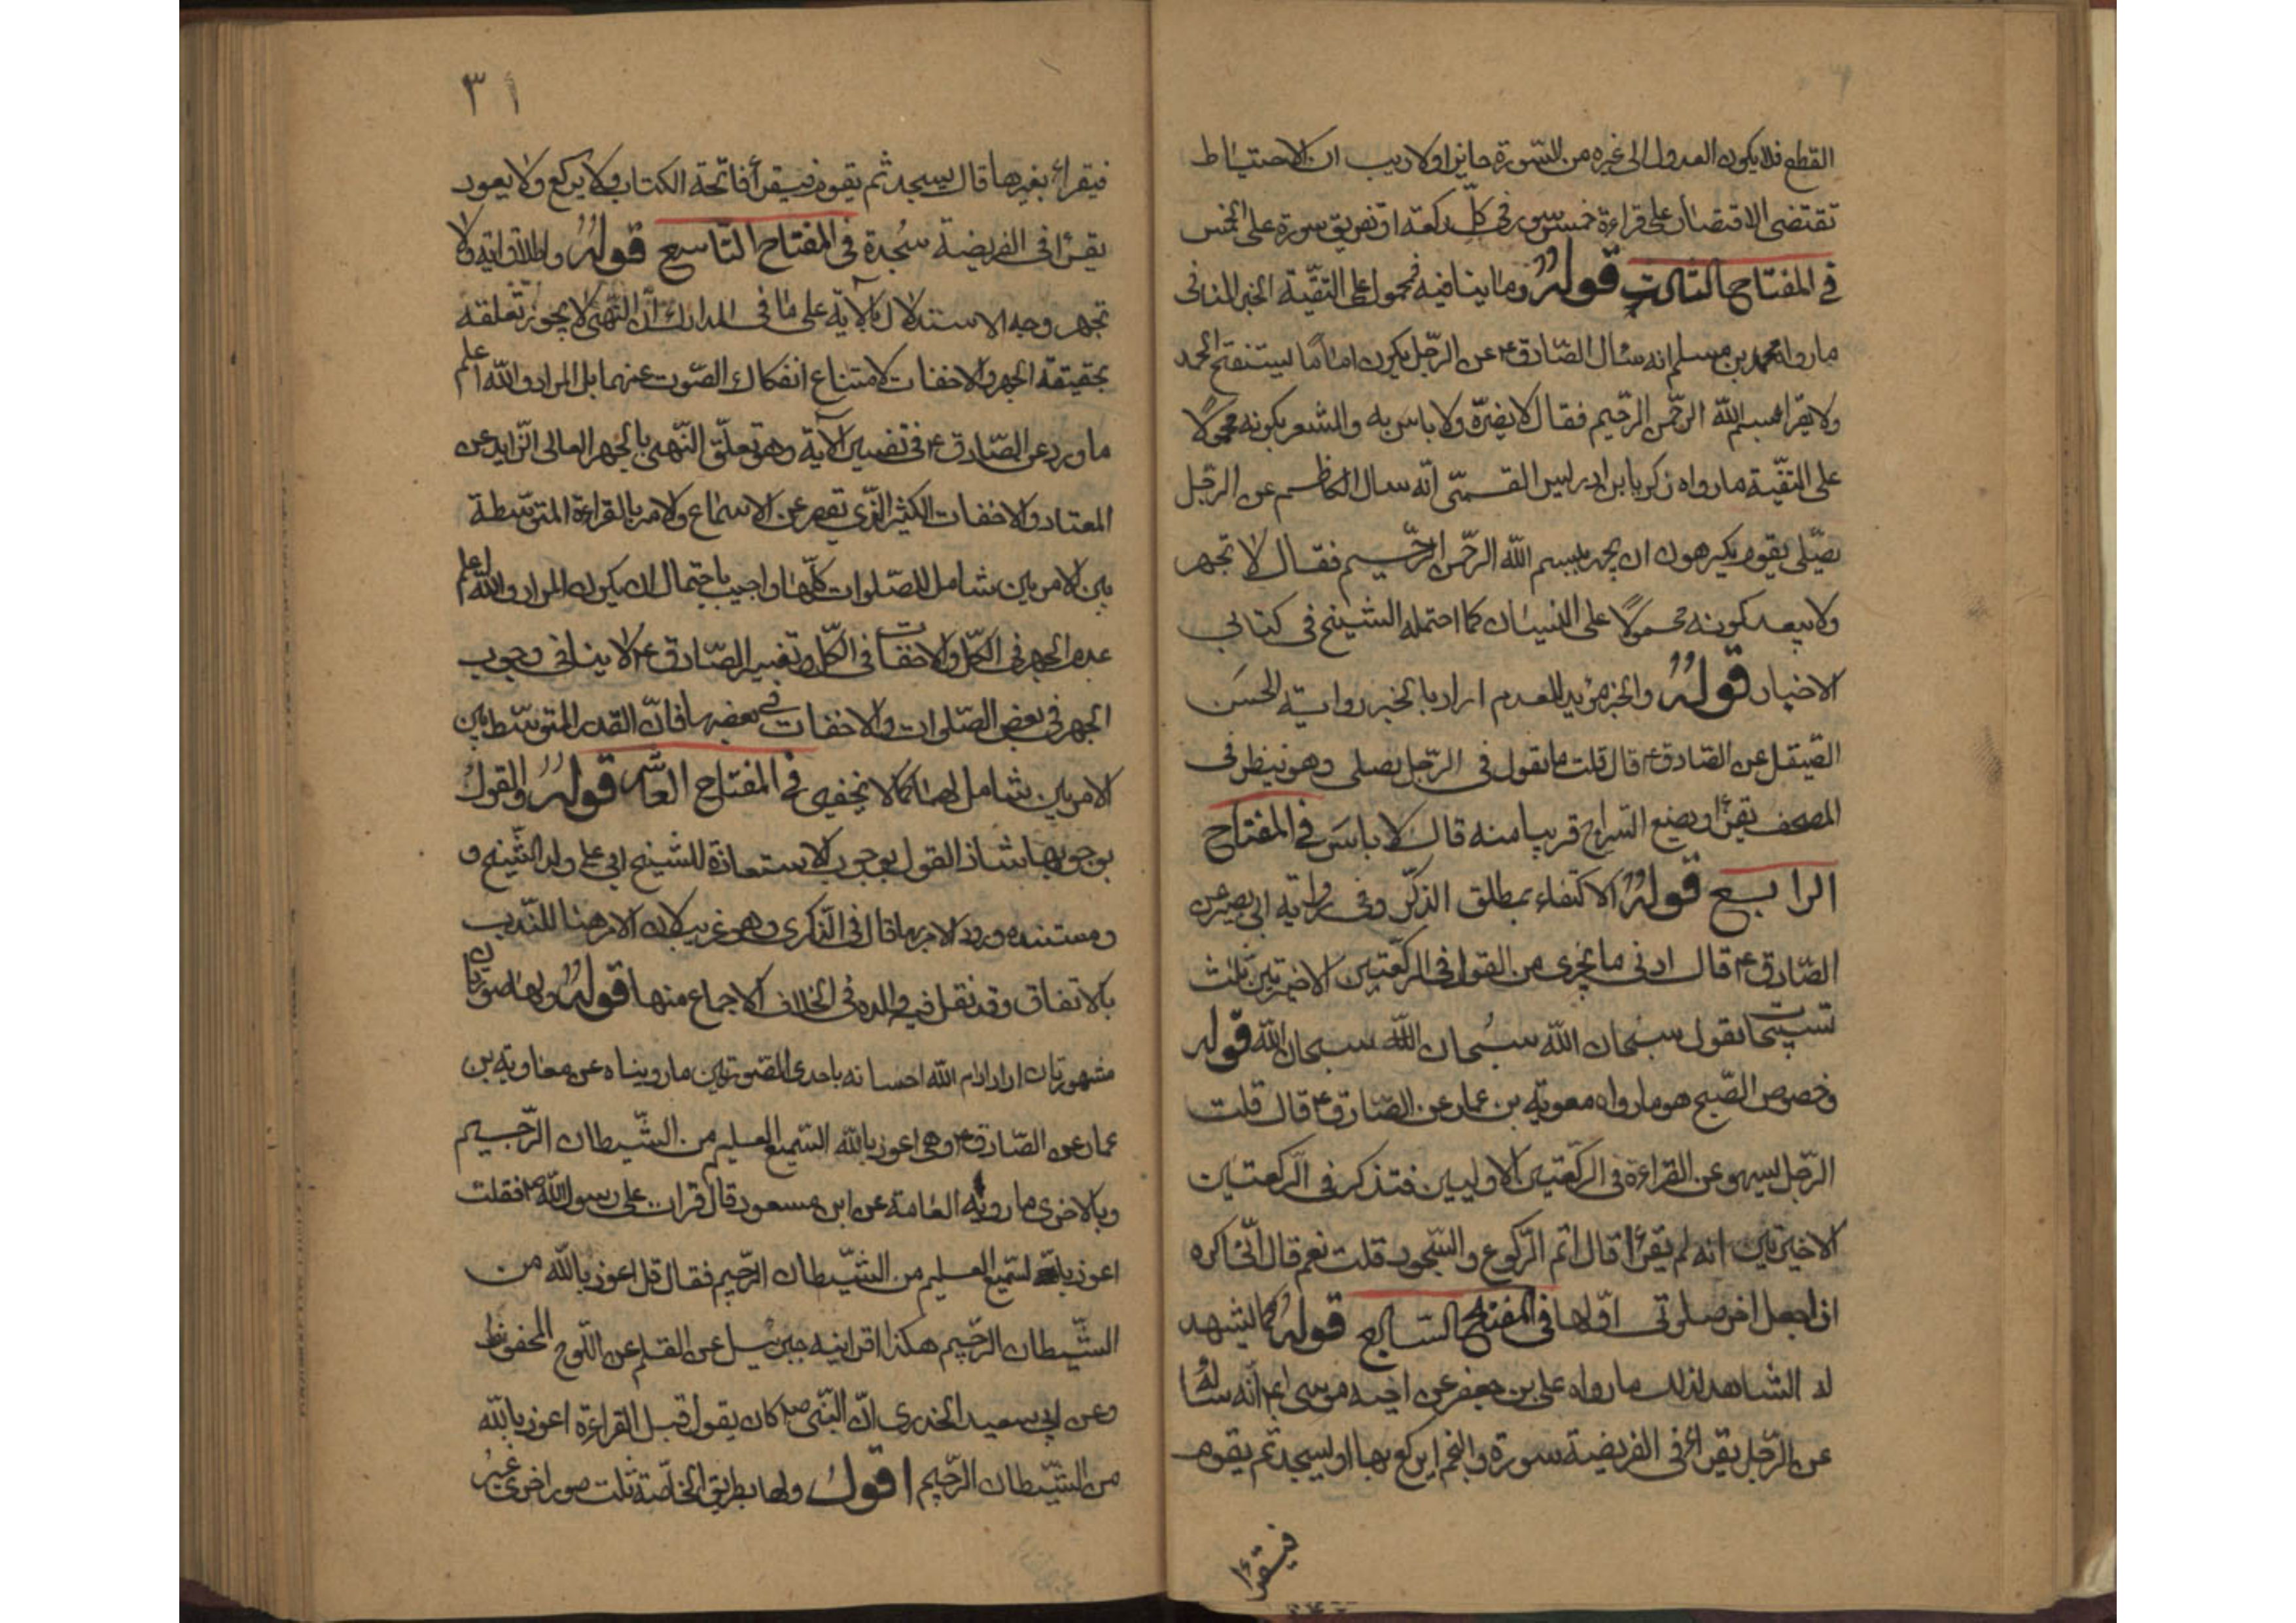 القطع فلا يكون العدول الى غيره من السّورة جايزا ولا ريب ان الاحتياط
تقتضى الاقتصار على قراءة خمس سور فى كلّ ركعة او تفريق سورة على الخمس
فى المفتاح الثالث قوله وما ينافيه فمحمول على التقيّة الخبر المنافى
مارواه محمد بن مسلم انه سئال الصّادق ع عن الرّجل يكون اماما يستفتح الحمد
ولا يقرا بسم الله الرحمن الرحيم فقال لا يضرّه ولا باس به والمشعر بكونه محمولًا
على التقيّة مارواه زكريا بن ادريس القمىّ انّه سال الكاظم عن الرجل
يصلّى بقوم يكرهون ان يجهر ببسم الله الرحمن الرّحيم فقال لا تجهر
ولا يبعد كونه محمولًا على النسيان كما احتمله الشيخ فى كتابى
الاخبار قوله والخبر مؤيد للعدم اراد بالخبر رواية الحسن
الصيقل عن الصّادق ع قال قلت ما تقول فى الرّجل يصلى وهو ينظر فى
المصحف يقرأ ويضع السّراج قريبا منه قال لا باس فى المفتاح
الرابع قوله الاكتفاء بمطلق الذكر وفى رواية ابى بصير عن
الصّادق ع قال ادنى ما يجزى من القول فى الركعتين الاخيرتين ثلث
تسبيحات يقول سبحان الله سبحان الله سبحان الله قوله
وخصوص الصّبح هو مارواه معوية بن عمار عن الصّادق ع قال قلت
الرّجل يسهو عن القراءة فى الركعتين الاوليين فتذكر فى الركعتين
الاخيرتين انه لم يقرأ قال اتم الركوع والسّجود قلت نعم قال انّى اكره
ان اجعل اخر صلوتى اوّلها فى المفتاح السابع قوله كما يشهد
له الشاهد لذلك مارواه على بن جعفر عن اخيه موسى ع انه ساله
عن الرّجل يقرأ فى الفريضة سورة والنجم ايركع بها او يسجد ثم يقوم
فيقرأ
٣١
فيقراء بغيرها قال يسجد ثم يقوم فيقرأ فاتحة الكتاب ولا يركع ولا يعود
يقرأ فى الفريضة سجدة فى المفتاح التاسع قوله واطلاق اية ولا
تجهر وجه الاستدلال بالآية على ما فى المدارك أنّ النّهى لا يجوز تعلقه
بحقيقة الجهر والاخفات لامتناع انفكاك الصّوت عنهما بل المراد والله اعلم
ما ورد عن الصّادق ع فى تفسير الآية وهو تعلّق النّهى بالجهر العالى الزّايد عن
المعتاد والاخفات الكثير الذّى يقصر عن الاسماع والامر بالقراءة المتوسّطة
بين الامرين شامل للصّلوات كلّها واجيب باحتمال ان يكون المراد والله اعلم
عدم الجهر فى الكلّ والاخفات فى الكلّ وتفسير الصّادق ع لا ينافى وجوب
الجهر فى بعض الصّلوات والاخفات فى بعضها فانّ القدر المتوسّط بين
الامرين شامل لهما كما لا يخفى فى المفتاح العاشر قوله والقول
بوجوبها شاذ القول بوجوب الاستعاذة للشيخ ابى على ولد الشّيخ و
ومستنده ورود الامر بها قال فى الذكرى وهو غريب لان الامر هنا للندب
بالاتفاق وقد نقل فيه والده فى الخلاف الاجماع منها قوله ولها صورتان
مشهورتان اراد ادام الله احسانه باحدى الصورتين مارويناه عن معاوية بن
عمار عن الصّادق ع وهى اعوذ بالله السّميع العليم من الشّيطان الرّجيم
وبالاخرى ما رويه العامة عن ابن مسعود قال قرات على رسول الله ص فقلت
اعوذ بالله السّميع العليم من الشّيطان الرّجيم فقال قل اعوذ بالله من
الشّيطان الرّجيم هكذا اقرانيه جبرئيل عن القلم عن اللّوح المحفوظ
وعن ابى سعيد الخدرى انّ النّبى ص كان يقول قبل القراءة اعوذ بالله
من الشّيطان الرّجيم اقول ولها بطريق الخاصّة ثلث صور اخرى غير